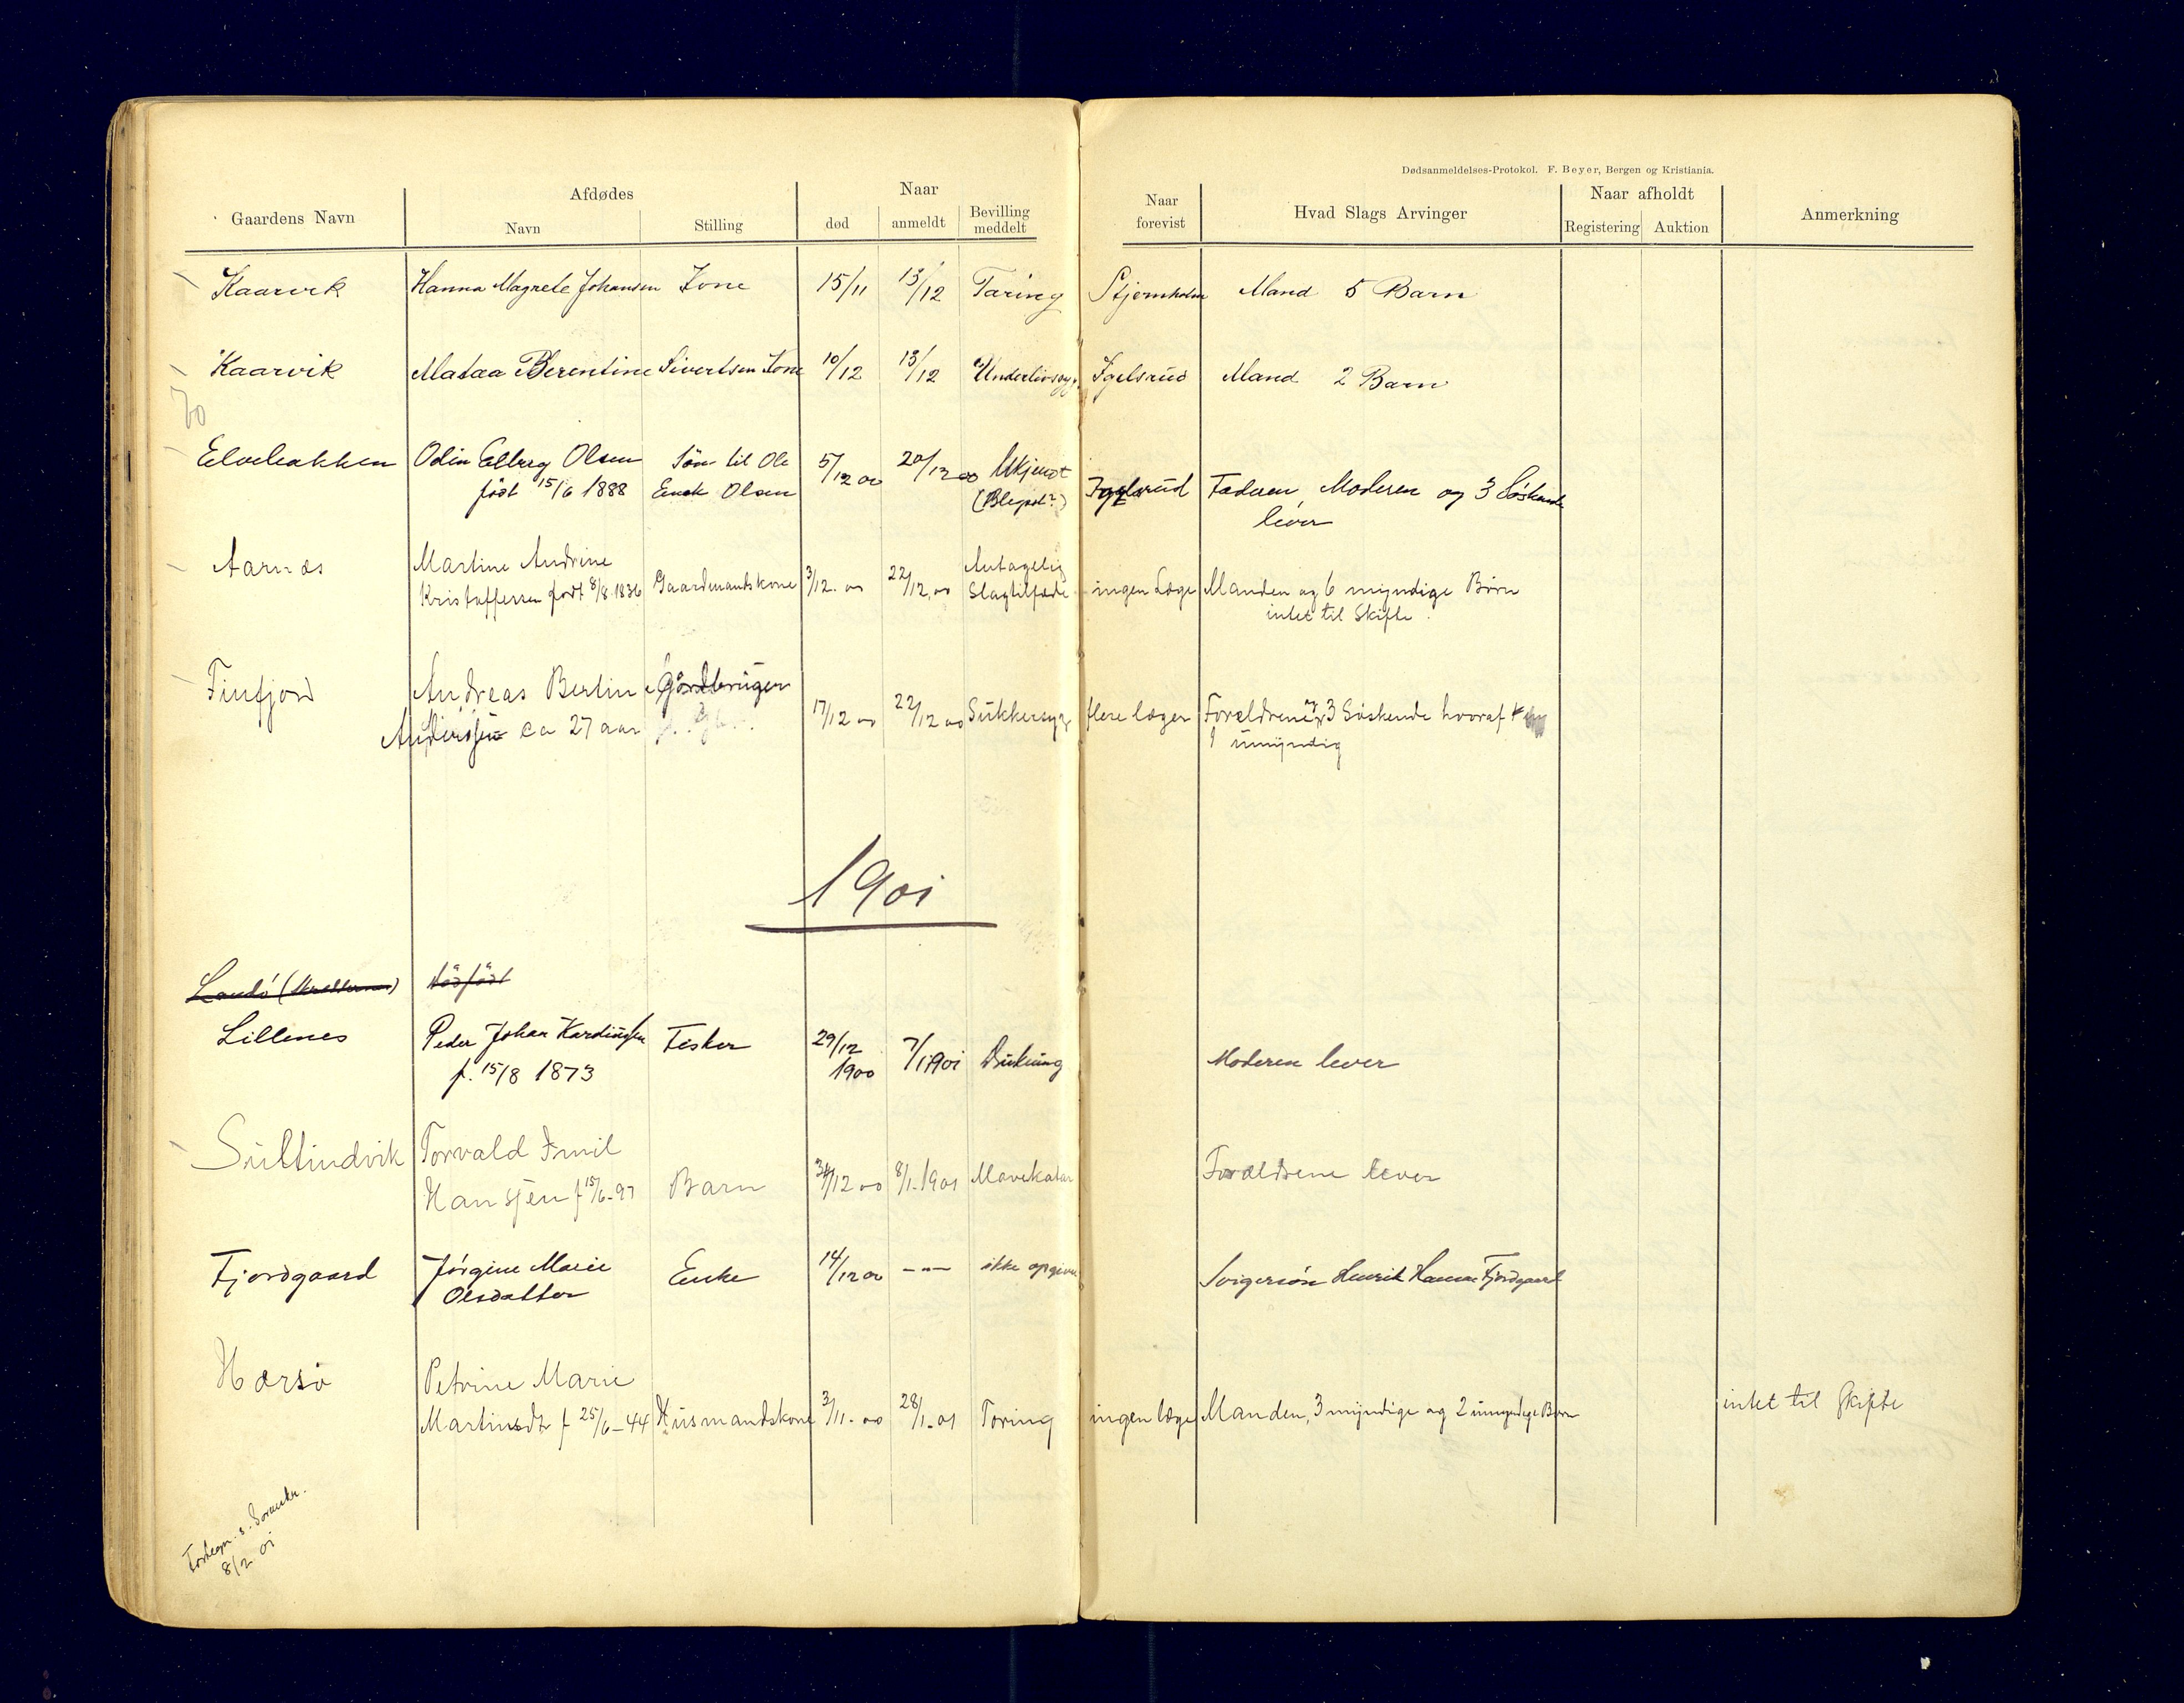 Dødsanmeldelses-Protokol. F. Beyer, Bergen og Kristiania.
Gaardens Navn Afdødes Naar Naar forevist Hvad Slags Arvinger Naar afholdt Anmerkning
Navn Stilling død anmeldt Bevilling meddelt Registering Auktion
Kaarvik Hanna Magrete Johansen Kone 15/11 13/12 Tæring Stjernholm Mand 5 Barn
Kaarvik Mataa Berentine Sivertsen Kone 10/12 13/12 Underlivssyg. Igelsrud Mand 2 Barn
70
Elvebakken Odin Elberg Olsen Søn til Ole 5/12 00 20/12 00 Ukjendt
født 15/6 1888 Enok Olsen (Blegsot?) Igelsrud Faderen, Moderen og 3 Søskende
lever
Aarnæs Martine Andrine Antagelig
Kristoffersen født 8/8 1836 Gaardmandskone 3/12. 00 22/12. 00 Slagtilfæde ingen Læge Manden og 6 myndige Børn
intet til Skifte.
Finfjord Andreas Bertin Gårdbruger
Anderssen ca 27 aar 17/12 00 22/12 00 Sukkersyge flere læger Forældrene og 3 Søskende hvoraf
1 umyndig
1901
Landø dødfødt
Lillenes Peder Johan Hardingsen Fisker 29/12 7/1 1901 Drukning
f. 15/8 1873 1900 Moderen lever
Sultindvik Torvald Emil
Hansen f 15/6-97 Barn /12 00 8/1-1901 Mavekatar Forældrene lever
Fjordgaard Jørgine Marie Enke 14/12 00 - " - ikke opgivet Svigersøn Henrik Hansen Fjordgaard
Olsdatter
Hærsø Petrine Marie
Martinsdt f 25/6-44 Husmandskone 3/11-00 28/1-01 Tæring ingen læge Manden, 3 myndige og 2 umyndige Børn intet til skifte
8/2 01